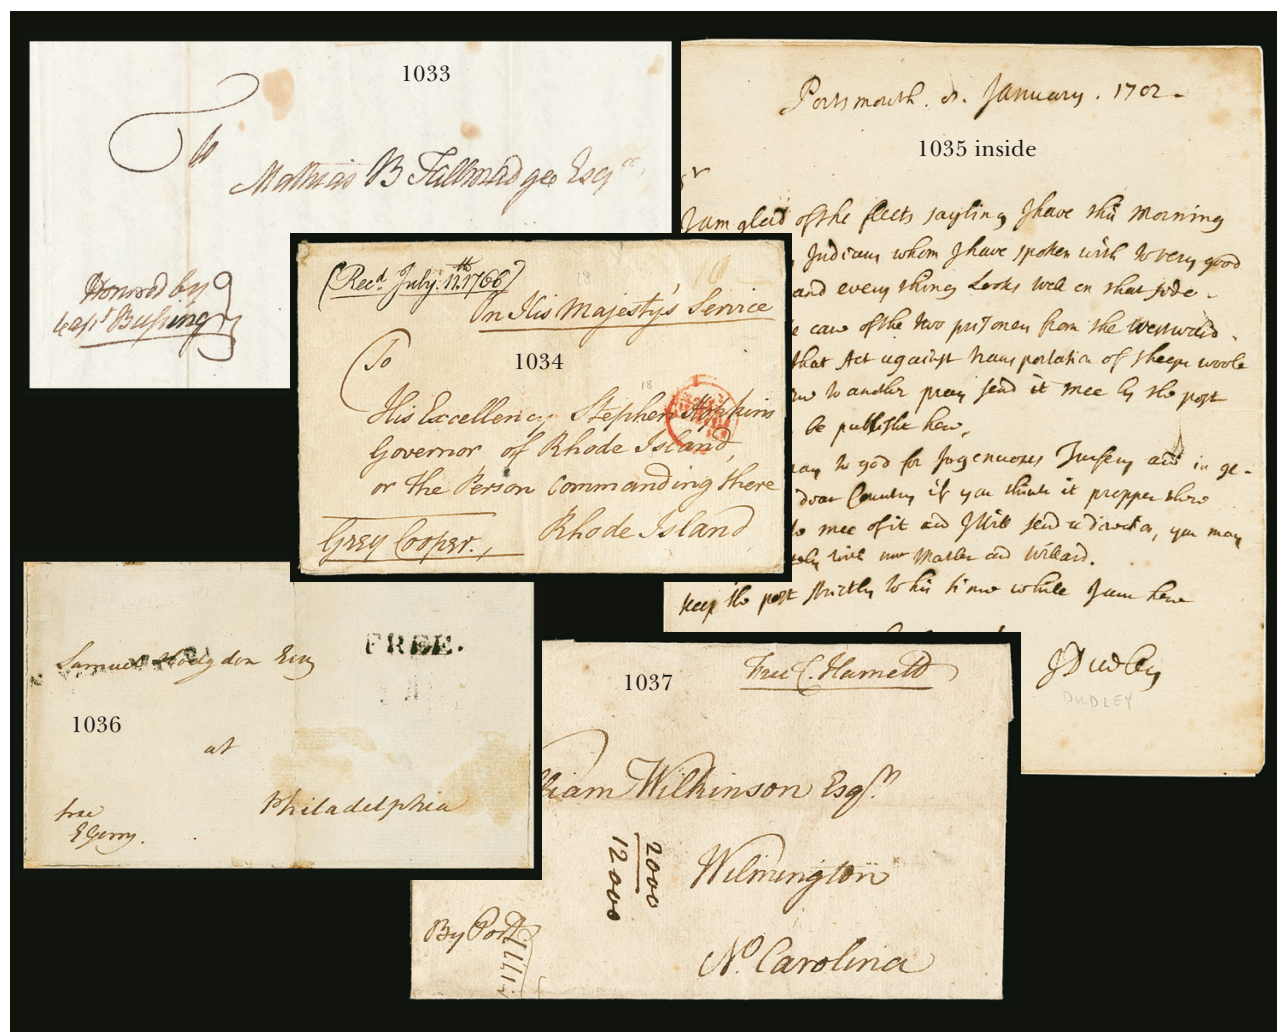 1033
To
Mathias B Tallmadge Esqr
Honored by
Capt Bussing
1034
(Recd. July 11th. 1766)
On His Majesty's Service
To
His Excellency Stephen Hopkins
Governor of Rhode Island,
or the Person Commanding there
Rhode Island
Grey Cooper.
18
18
10
1035 inside
Portsmouth. 8. January. 1702-
Sr
I am glad of the fleets sayling I have this morning
Indians whom I have spoken with to very good
and every thing Looks well on that side-
care of the two prisoners from the westward.
that Act against transportation of sheeps woole
to another pray send it mee by the post
be publisht here,
to god for
dear Country if you think it propper
mee of it and I will send a direction, you may
with Mather and Willard.
keep the post strictly to his time while I am here
JDudley
DUDLEY
1036
Samuel Hodgdon Esq
FREE.
at
Philadelphia
free
EGerry.
1037
Free C. Harnett
William Wilkinson Esqr.
Wilmington
No. Carolina
2000
12000
By Post
1777